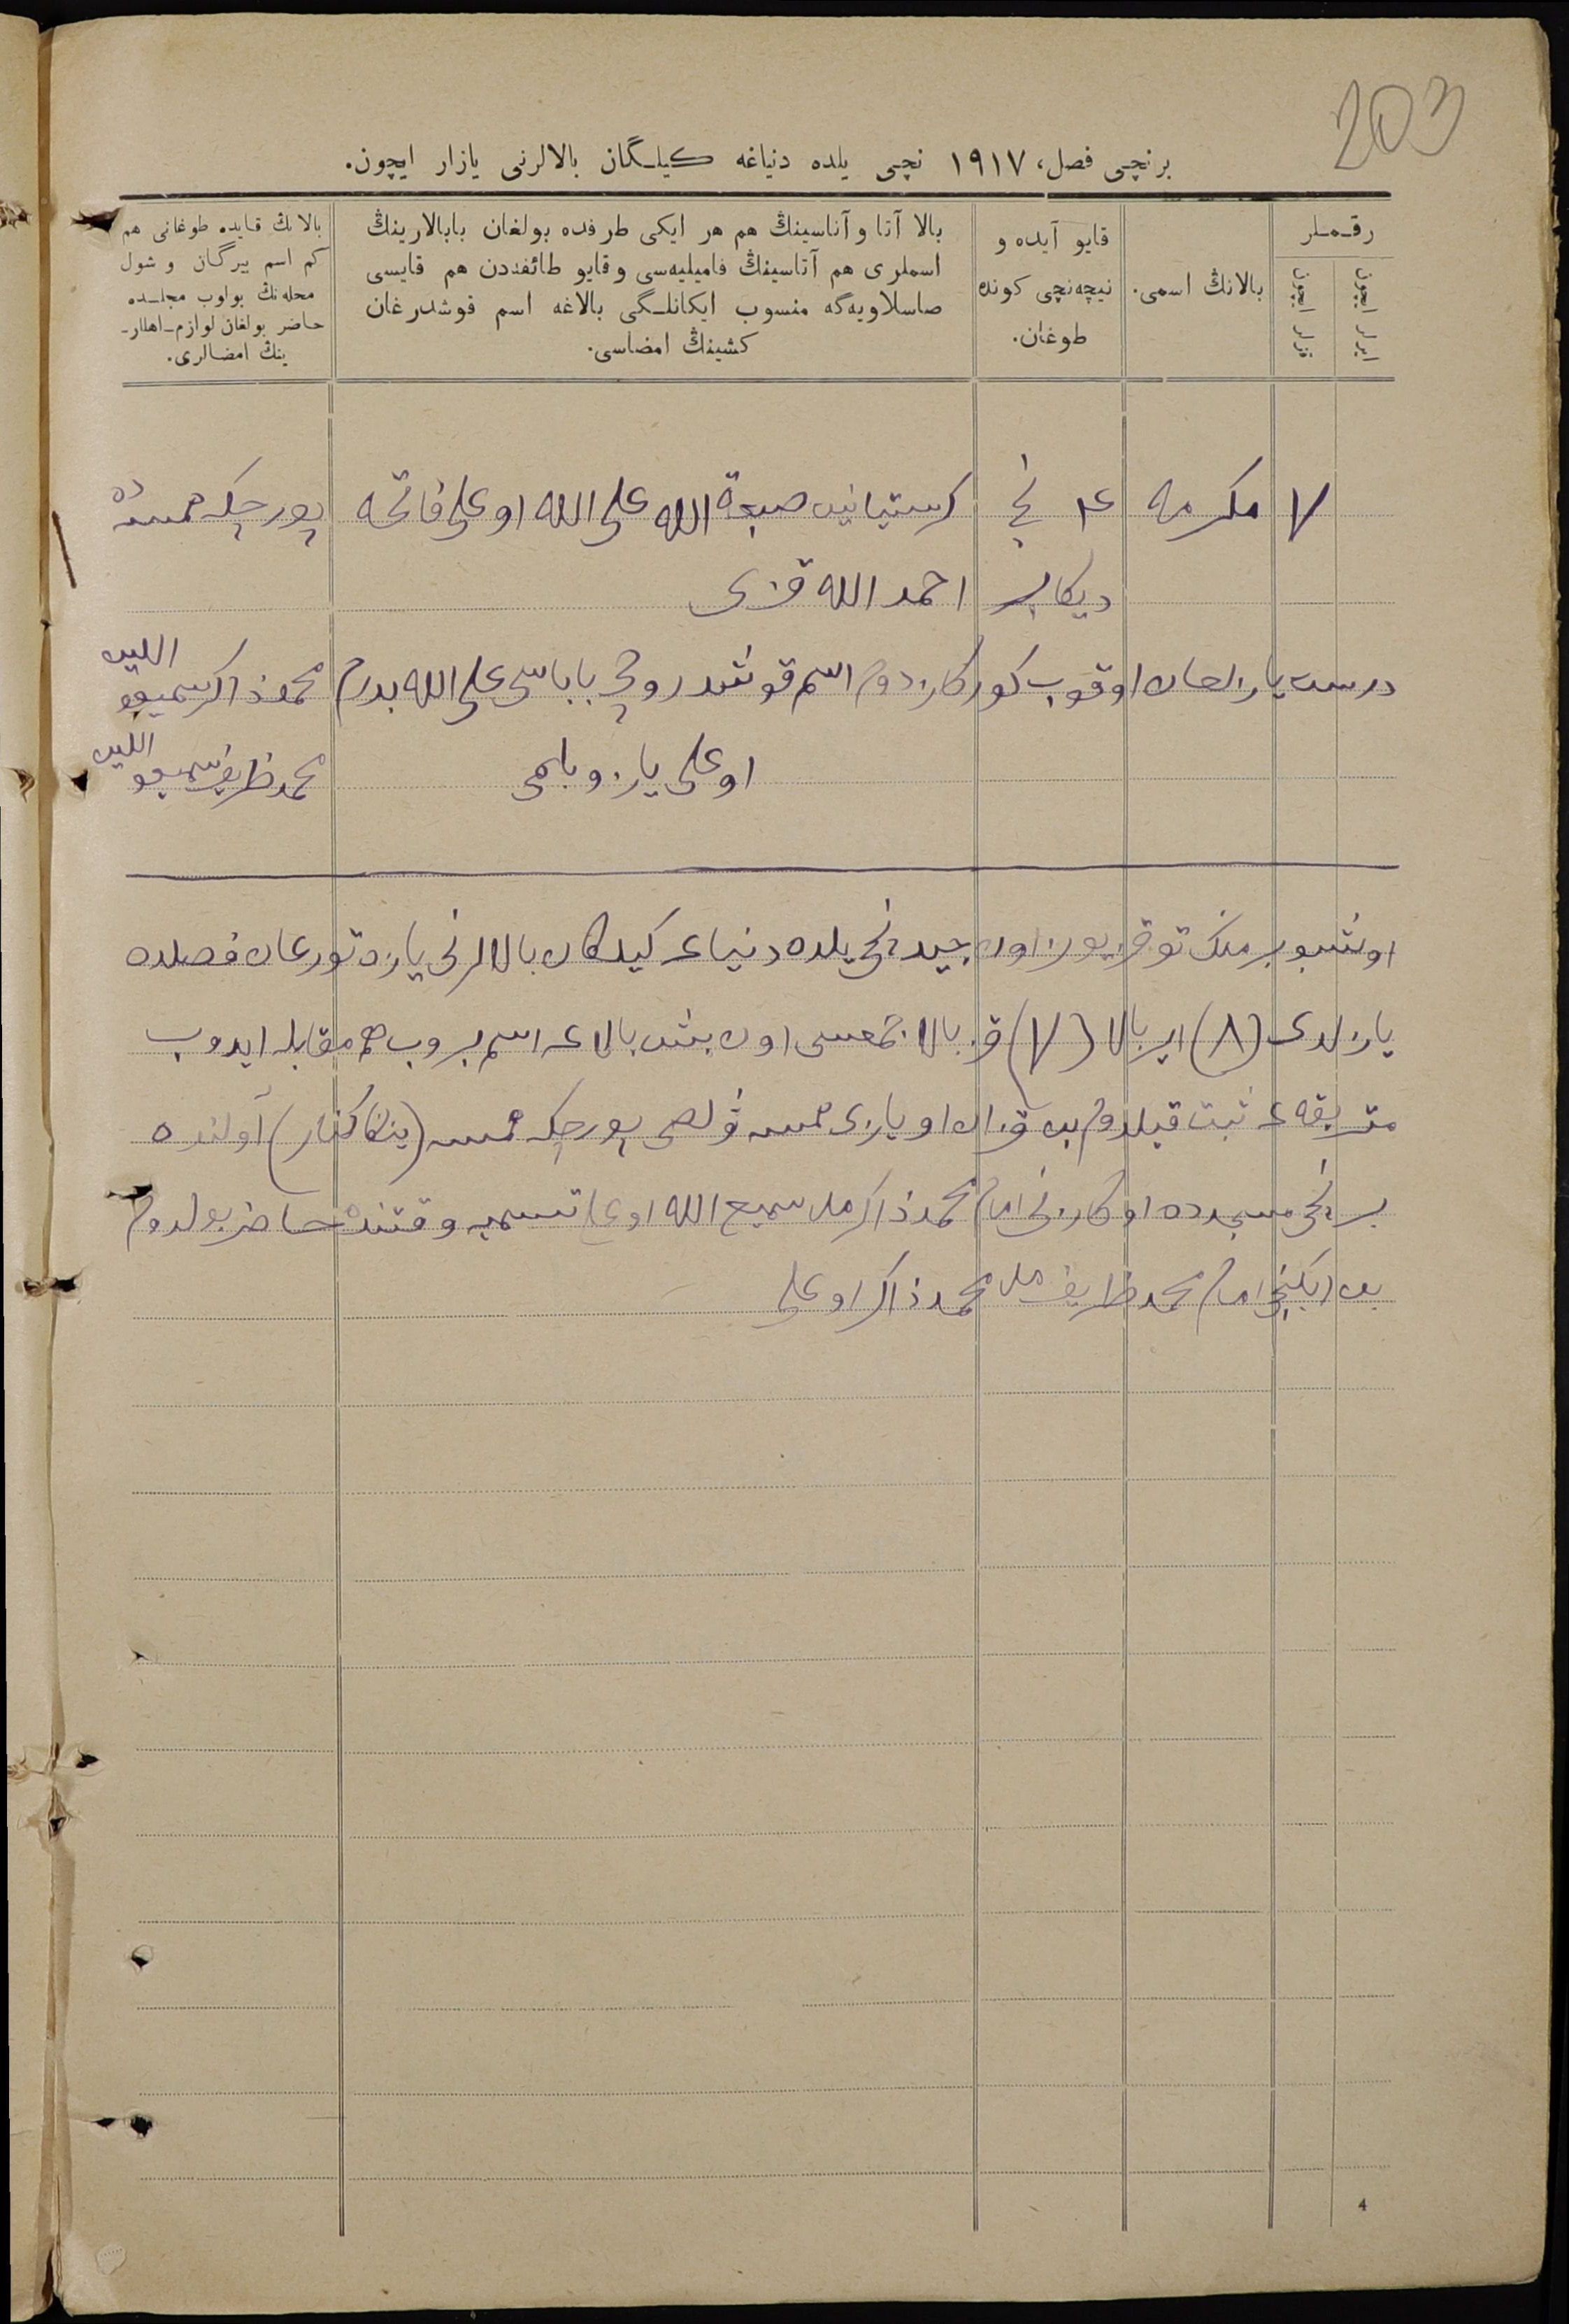 203
برنچی فصل، ١٩١٧ نچی یلده دنیاغه کیلگان بالالرنی یازار ایچون.
رقملر
ایرلر ایچون
قزلر ایچون
بالانڭ اسمی.
قایو آیده و
نیچه‌نچی کونده
طوغان.
بالا آتا و آناسینڭ هم هر ایکی طرفده بولغان بابالارینڭ
اسملری هم آتاسینڭ فامیلیه‌سی و قایو طائفه‌دن هم قایسی
صاسلاویه‌گه منسوب ایکانلگی بالاغه اسم قوشدرغان
کشینڭ امضاسی.
بالانڭ قایده طوغانی هم
کم اسم بیرگان و شول
محله‌نڭ بولوب مجلسده
حاضر بولغان لوازم اهللار-
ینڭ امضالری.
٧ مکرمه ٤ نچی کرستیانین صبغة الله علی الله اوغلی فاتحه
دیکابر احمد الله قزی
درست یازلغان اوقوب کورکاندوم اسم قوشدروچی باباسی علی الله بدرم
اوغلی یاز و بلمی
محمد ذاکر سمیع اللین
محمد ظریف سمیع اللین
اوشبو بر منک توقز یوز اون جیدنچی یلده دنیاغه کیلکان بالالرنی یازه تورغان فصلده
یازلدی (٨) ایر بالا (٧) قز بالا جمعسی اون بش بالاغه اسم بروب هم مقابله ایدوب
متریقه غه ثبت قیلدوم بن قزان اویازی
اولنده
برنچی مسجدده اوکازنی امام محمد ذاکر ملا سمیع الله اوغلی تسمیه وقتنده حاضر بولدوم
بن ایکنچی امام محمد ظریف ملا محمد ذاکر اوغلی
4